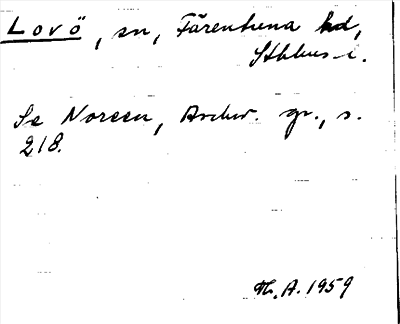 Lovö, sn, Färentuna hd,
Sthlms l.
Se Noreen, Aschw. gr., s.
218.
Th. A. 1959